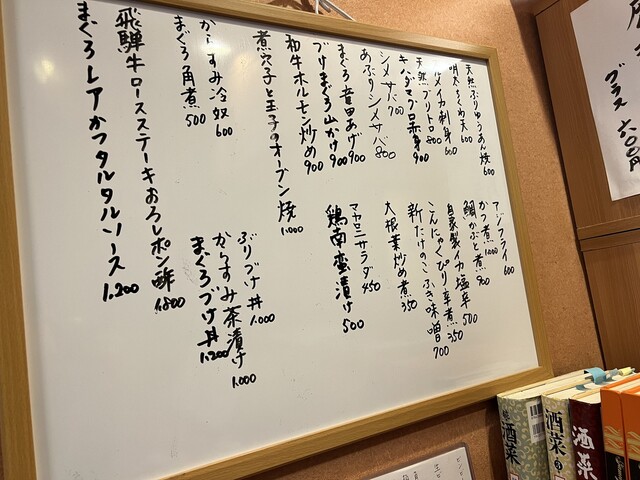 天然ぶりゅうあん焼 600
明太ちくわ天 600
イカ刺身 600
天然ブリトロ 800
キハダマグロ赤身 900
シメサバ 700
あぶりシメサバ 800
まぐろ竜田あげ 900
づけまぐろ山かけ 900
和牛ホルモン炒め 900
煮穴子と玉子のオーブン焼 1.000
からすみ冷奴 600
まぐろ角煮 500
飛騨牛ロースステーキおろしポン酢 1.800
まぐろレアかつタルタルソース 1.200
アジフライ 600
かつ煮 1.000
鯛かぶと煮 900
自家製イカ塩辛 500
こんにゃくぴり辛煮 350
新たけのこふき味噌 700
大根葉炒め煮 350
マカロニサラダ 450
鶏南蛮漬け 500
ぶりづけ丼 1.000
からすみ茶漬け 1.000
まぐろづけ丼 1.200
グラス
酒菜
酒菜
酒菜